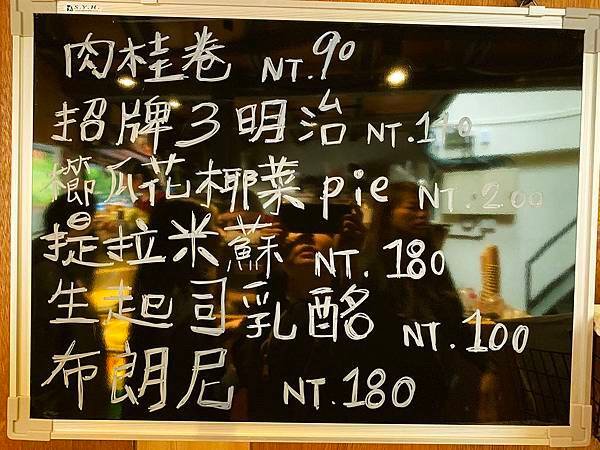 S.Y.H.
肉桂卷 NT.90
招牌3明治 NT.140
櫛瓜花椰菜pie NT.200
提拉米蘇 NT.180
生起司乳酪 NT.100
布朗尼 NT.180